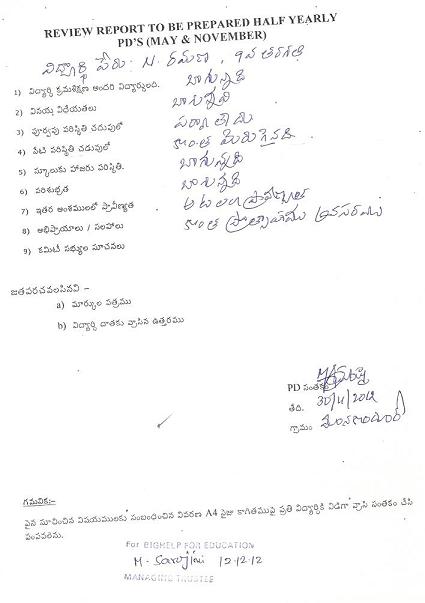 REVIEW REPORT TO BE PREPARED HALF YEARLY
PD'S (MAY & NOVEMBER)
విద్యార్థి పేరు: N. రమణ, 9వ తరగతి
1) విద్యార్థి క్రమశిక్షణ అందరి విద్యార్థులది. బాగున్నది
2) వినయ విధేయతలు బాగున్నవి
3) పూర్వపు పరిస్థితి చదువులో పర్వాలేదు
4) నేటి పరిస్థితి చదువులో కొంత మెరుగైనది
5) స్కూలుకు హాజరు పరిస్థితి. బాగున్నది
6) పరిశుభ్రత బాగున్నది
7) ఇతర అంశములలో ప్రావీణ్యత ఆటలలో ప్రావీణ్యత
8) అభిప్రాయాలు / సలహాలు కొంత ప్రోత్సాహము అవసరము
9) కమిటీ సభ్యుల సూచనలు
జతపరచవలసినవి :-
a) మార్కుల పత్రము
b) విద్యార్థి దాతకు వ్రాసిన ఉత్తరము
PD సంతకం
తేది. 30/11/2012
గ్రామం
గమనిక:-
పైన సూచించిన విషయములకు సంబంధించిన వివరణ A4 సైజు కాగితముపై ప్రతి విద్యార్థికి విడిగా వ్రాసి సంతకం చేసి
పంపవలెను.
For BIGHELP FOR EDUCATION
M. Sarojini 12.12.12
MANAGING TRUSTEE